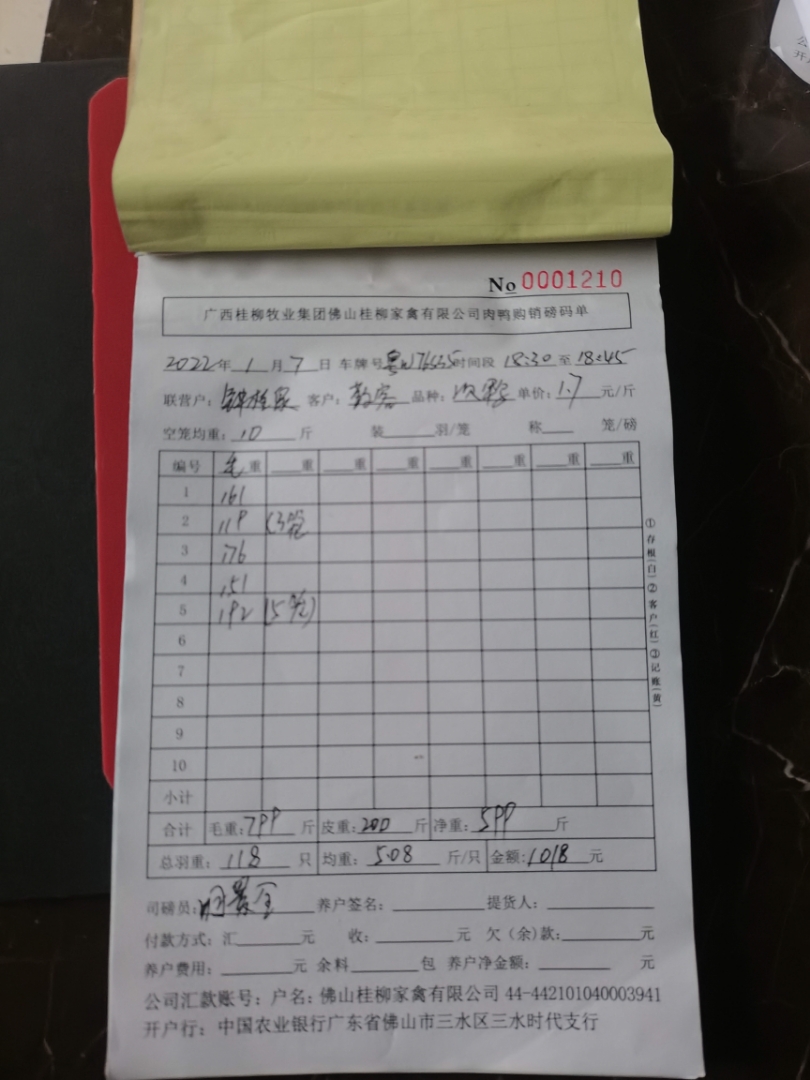 No 0001210
广西桂柳牧业集团佛山桂柳家禽有限公司肉鸭购销磅码单
2022年 1月 7日 车牌号 时间段 18:30 至 18:45
联营户: 客户: 散客 品种: 单价: 1.7 元/斤
空笼均重: 10 斤 装 羽/笼 称 笼/磅
编号 毛重 重 重 重 重 重 重 重
1 161
2 119 (3笼
3 176
4 151
5 192 (5笼)
6
7
8
9
10
小计
合计 毛重: 799 斤 皮重: 200 斤 净重: 599 斤
总羽重: 118 只 均重: 5.08 斤/只 金额: 1018 元
司磅员: 养户签名: 提货人:
付款方式: 汇 元 收: 元 欠(余)款: 元
养户费用: 元 余料 包 养户净金额: 元
公司汇款账号: 户名: 佛山桂柳家禽有限公司 44-442101040003941
开户行: 中国农业银行广东省佛山市三水区三水时代支行
①存根(白)②客户(红)③记账(黄)